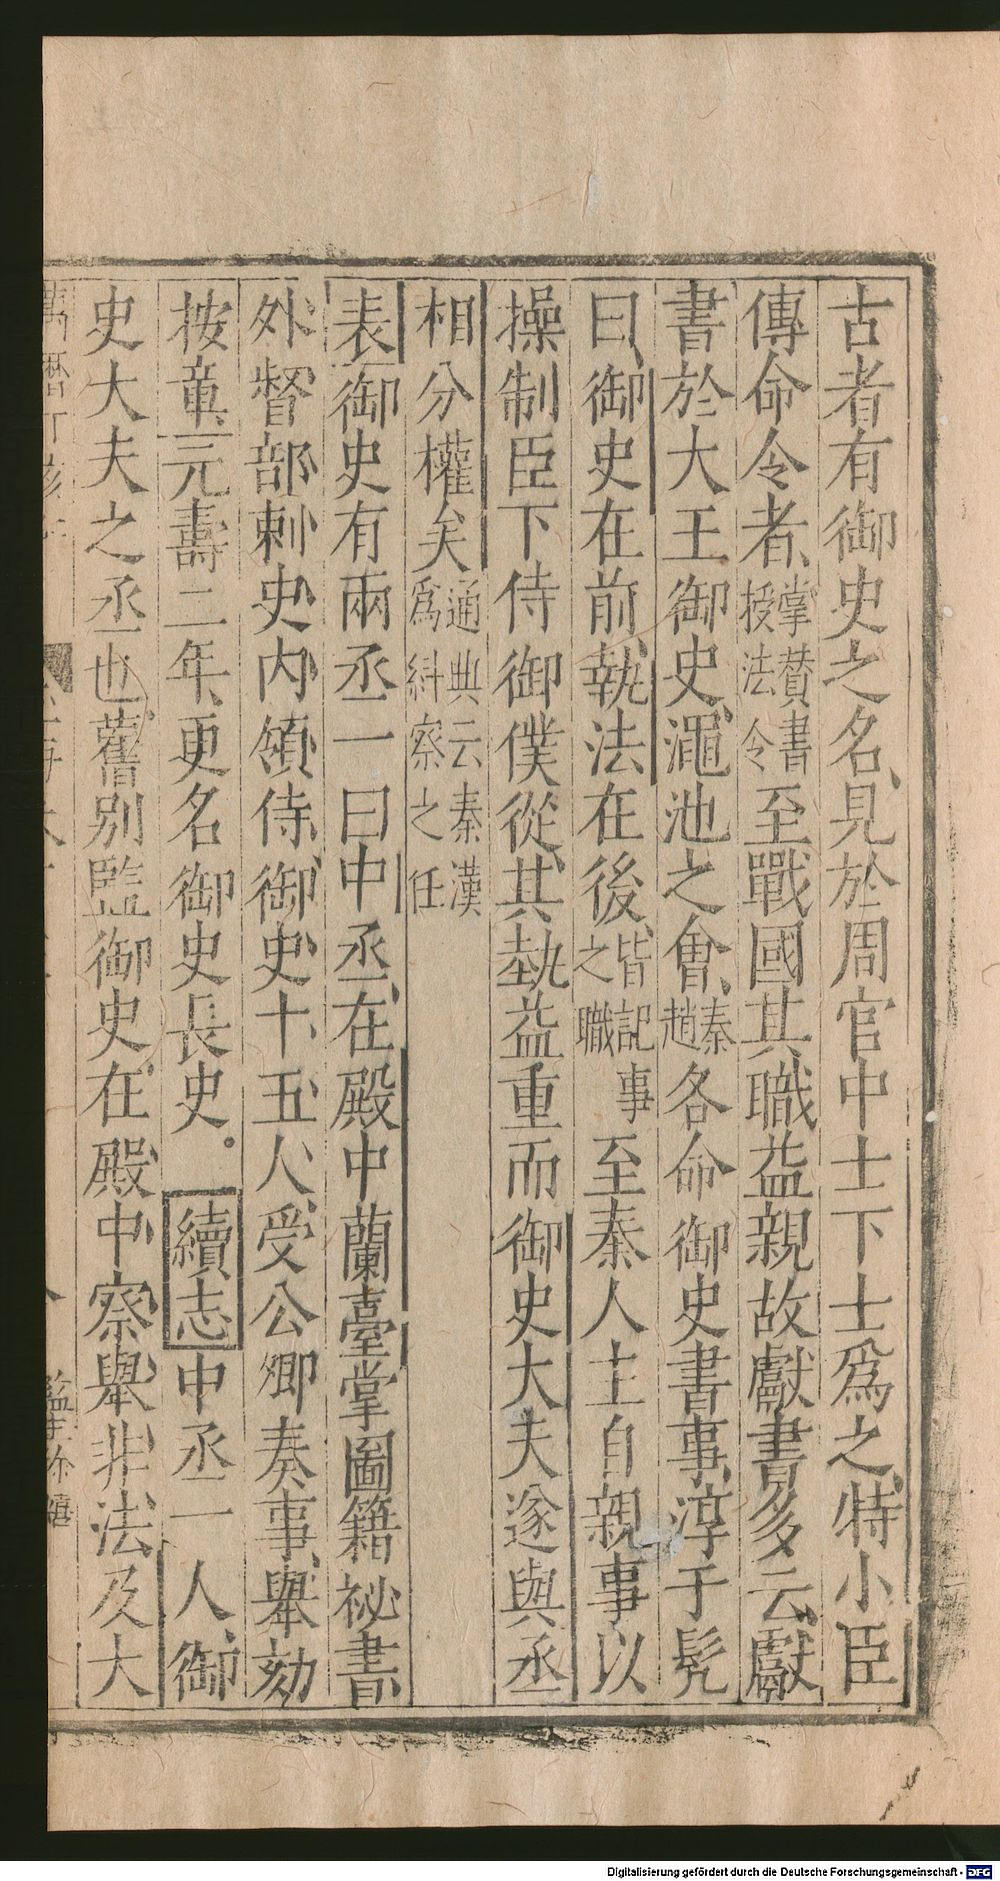 古者有御史之名見於周官中士下士爲之特小臣
傳命令者掌贊書授法令至戰國其職益親故獻書多云獻
書於大王御史澠池之會秦趙各命御史書事淳于髠
曰御史在前執法在後皆記事之職至秦人主自親事以
操制臣下侍御僕從其埶益重而御史大夫遂與丞
相分權矣通典云秦漢爲糾察之任
表御史有兩丞一曰中丞在殿中蘭臺掌圖籍祕書
外督部刺史内領侍御史十五人受公卿奏事舉劾
按章元壽二年更名御史長史。續志中丞一人御
史大夫之丞也舊別監御史在殿中察舉非法及大
Digitalisierung gefördert durch die Deutsche Forschungsgemeinschaft - DFG